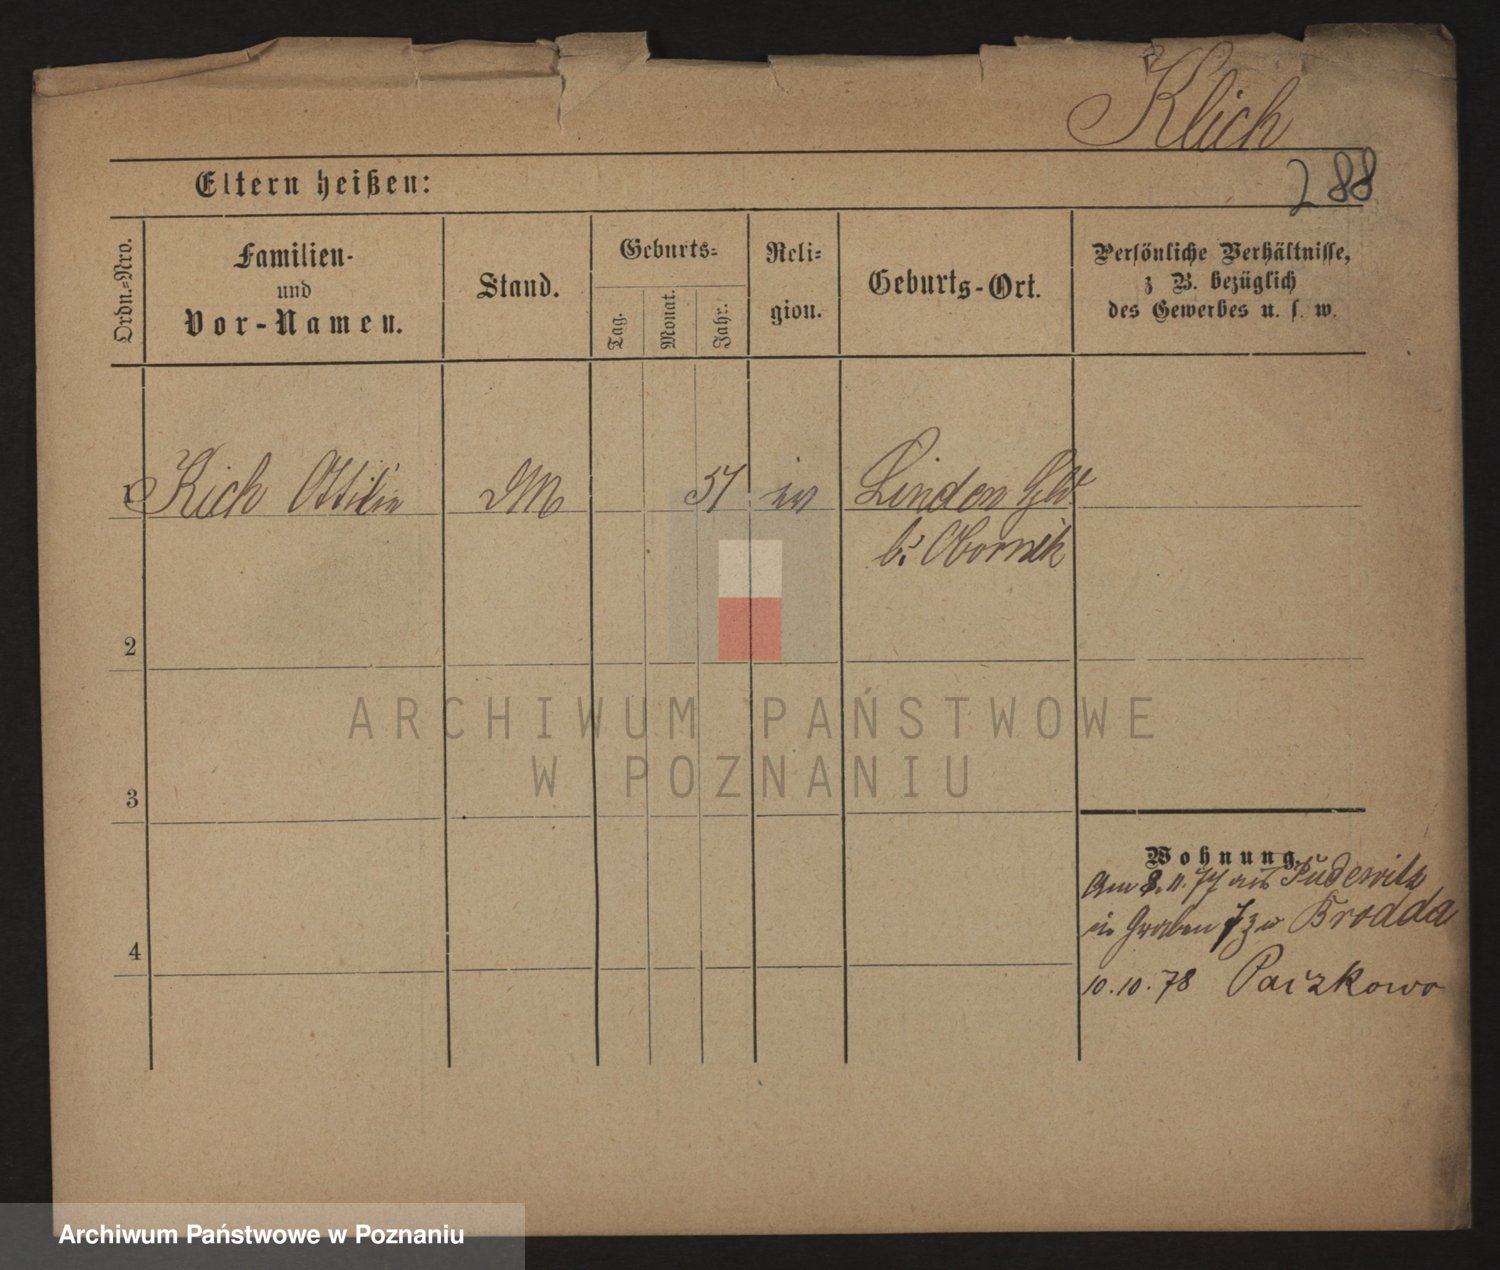 Klich
288
Eltern heißen:
Ordn.=Nro.
Familien-
und
Vor-Namen.
Stand.
Geburts=
Tag.
Monat.
Jahr.
Reli=
gion.
Geburts-Ort.
Persönliche Verhältnisse,
z. B. bezüglich
des Gewerbes u. s. w.
1 Klich Ottilie DM 51 ev Linden
b. Obornik
2
3
4
Wohnung.
Am 8.11.77 aus Pudewitz
in Graben 7 zu Brodda
10.10.78 Paczkowo
ARCHIWUM PAŃSTWOWE
W POZNANIU
Archiwum Państwowe w Poznaniu